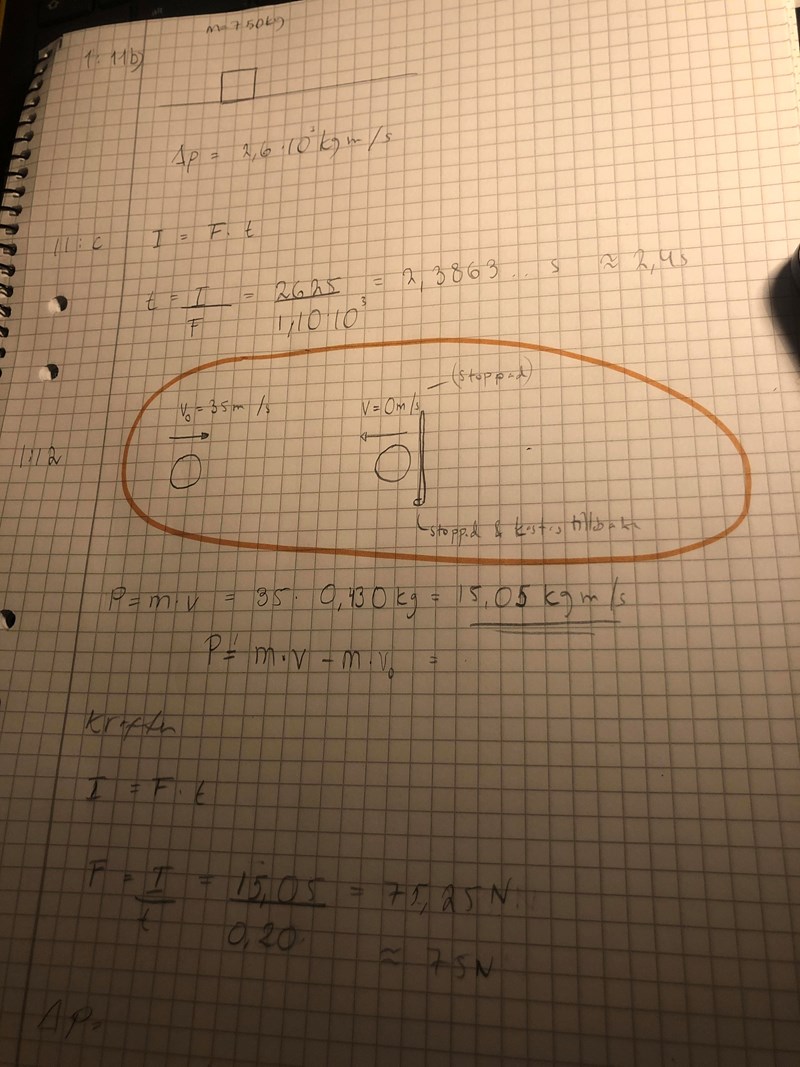 m=750kg
1:11b)
Δp = 2,6·10³ kg m/s
11:c I = F·t
t = I/F = 2625/1,10·10³ = 2,3863... s ≈ 2,4s
(stoppad)
v₀ = 35m/s v = 0m/s
1:12
stoppad & kastas tillbaka
P = m·v = 35 · 0,430 kg = 15,05 kg m/s
P = m·v - m·v₀ =
Kraften
I = F·t
F = I/t = 15,05/0,20 = 75,25 N
≈ 75N
ΔP=